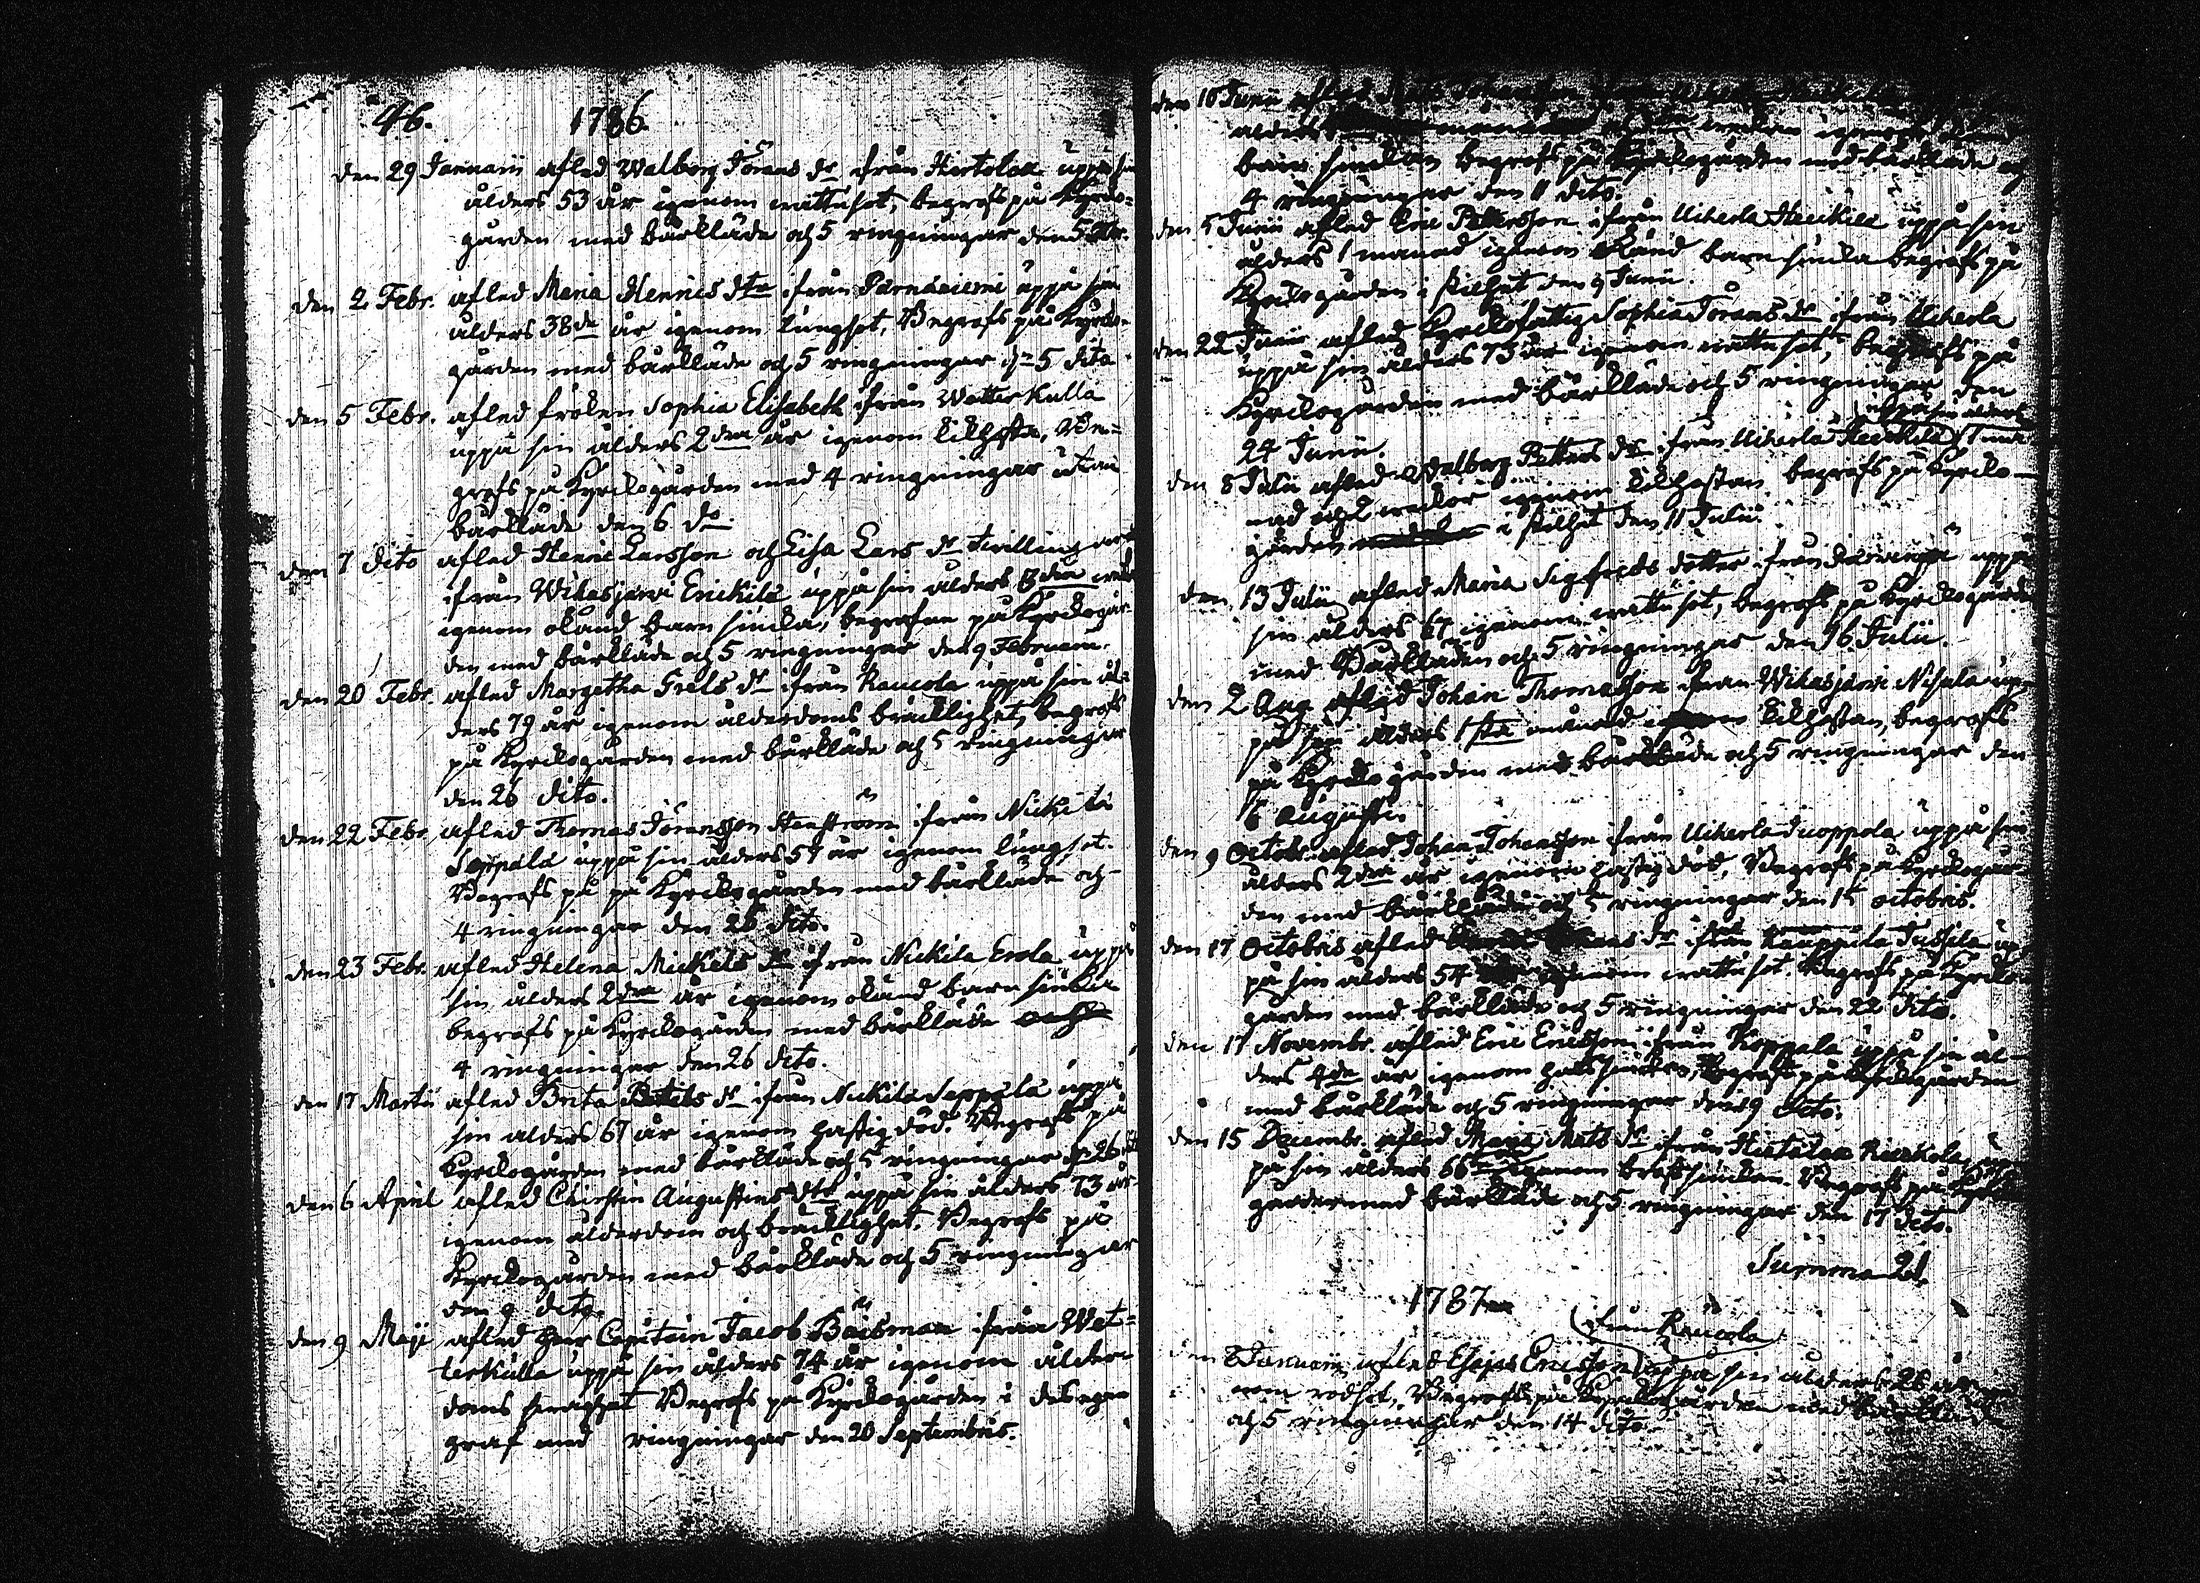 46. 1786.
den 29 Januarii afled Walborg Jörans dr ifrån Hertolax uppå sin
ålders 53 år igenom wattusot, begrofs på Kyrko-
gården med bårkläde och 5 ringningar den 5 Febr.
den 2 Febr. afled Maria Henrics dtr ifrån uppå sin
ålders 38de år igenom lungsot, Begrofs på Kyrko-
gården med bårkläde och 5 ringningar dn 5 dito
den 5 Febr. afled fröken Sophia Elisabeth ifrån Wetterkulla
uppå sin ålders 2dra år igenom kikhosta, Be-
grofs på Kyrckogården med 4 ringningar utan
bårkläde den 6 do.
den 7 dito afled Henric Larsson och Lisa Lars dr twillingar
ifrån Wihasjärwi Erickilä uppå sin ålders
igenom okänd barn siucka, begrofne på Kyrckogår-
den med bårkläde och 5 ringningar den 9 Februarii.
den 20 Febr. afled Margetha Grels dr ifrån Raucola uppå sin ål-
ders 79 år igenom ålderdoms bräcklighet, begrofs
på Kyrckogården med bårkläde och 5 ringningar
den 26 dito.
den 22 Febr. afled Thomas Jöransson ifrån Nickilä
Seppälä uppå sin ålders 57 år igenom lungsot.
Begrofs på på Kyrckogården med bårkläde och
4 ringningar den 26 dito.
den 23 Febr. afled Helena Mickels dr ifrån Nickilä Erola uppå
sin ålders 2dra år igenom okänd barn siucka
begrofs på Kyrckogården med bårkläde och
4 ringningar den 26 dito.
den 17 Martii afled Brita dr ifrån Nickilä Seppälä uppå
sin ålders 67 år igenom hastig död. Begrofs på
Kyrckogården med bårkläde och 5 ringningar dn 26 dito
den 6 April afled Christin Augustins dtr uppå sin ålders 73 år
igenom ålderdom och bräcklighet. Begrofs på
Kyrckogården med bårkläde och 5 ringningar
den 9 dito.
den 9 Maji afled Herr Capitain Jacob Båisman ifrån Wet-
terkulla uppå sin ålders 74 år igenom ålder-
doms swaghet Begrofs på Kyrckogården i des egen
graf med ringningar den 20 Septembris.
den 10 Junii afled
ålders
barn siuckan begrofs på Kyrckogården med bårkläde och
4 ringningar den 11 dito.
den 5 Junii afled Eric Pettersson ifrån Uiherla Heickilä uppå sin
ålders 1 månad igenom okänd barn siucka begrofs på
Kyrckogården i stillhet den 9 Junii.
den 22 Junii afled Kyrckofattig Sophia Jörans dr ifrån Uiherla
uppå sin ålders 75 år igenom wattusot, begrofs på
Kyrckogården med bårkläde och 5 ringningar den
24 Junii.
den 8 Julii afled Walborg Petters dr ifrån Uiherla Heickilä uppå sin ålders 1 må-
nad och 2 weckor igenom kikhostan begrofs på Kyrcko-
gården i stillhet den 11 Julii.
den 13 Julii afled Maria Sigfreds dotter ifrån uppå
sin ålders 67 igenom wattusot, begrofs på Kyrckogården
med Bårkläden och 5 ringningar den 16 Julii.
den 2 Aug afled Johan Thomasson ifrån Wihasjärwi Nisula up-
på sin ålders 1sta månad igenom kikhostan, begrofs
på Kyrckogården med bårkläde och 5 ringningar den
6 Augusti.
den 9 Octobr. afled Johan Johansson ifrån Uiherla Suoppola uppå sin
ålders 2dra år igenom hastig död, Begrofs på Kyrckogår-
den med bårkläde och 5 ringningar den 15 octobris.
den 17 Octobris afled dr ifrån Kauppila Jussila up
på sin ålders 54 igenom wattusot. Begrofs på Kyrcko
gården med bårkläde och 5 ringningar den 22 dito.
den 17 Novembr. afled Eric Ericsson ifrån Koppala uppå sin ål-
ders 4de år igenom halssiucka, Begrofs på Kyrckogården
med bårkläde och 5 ringningar den 19 dito.
den 15 Decembr. afled Maria Mats dr ifrån up
på sin ålders 66 igenom bröstsiuckan. Begrofs på Kyrcko
gården med bårkläde och 5 ringningar den 17 dito.
Summa 21.
1787
ifrån Raucola
den 8 Januarii afled Esaias Ericsson uppå sin ålders 26 år ige
nom rödsot, Begrofs på Kyrckogården med bårkläde
och 5 ringningar den 14 dito.